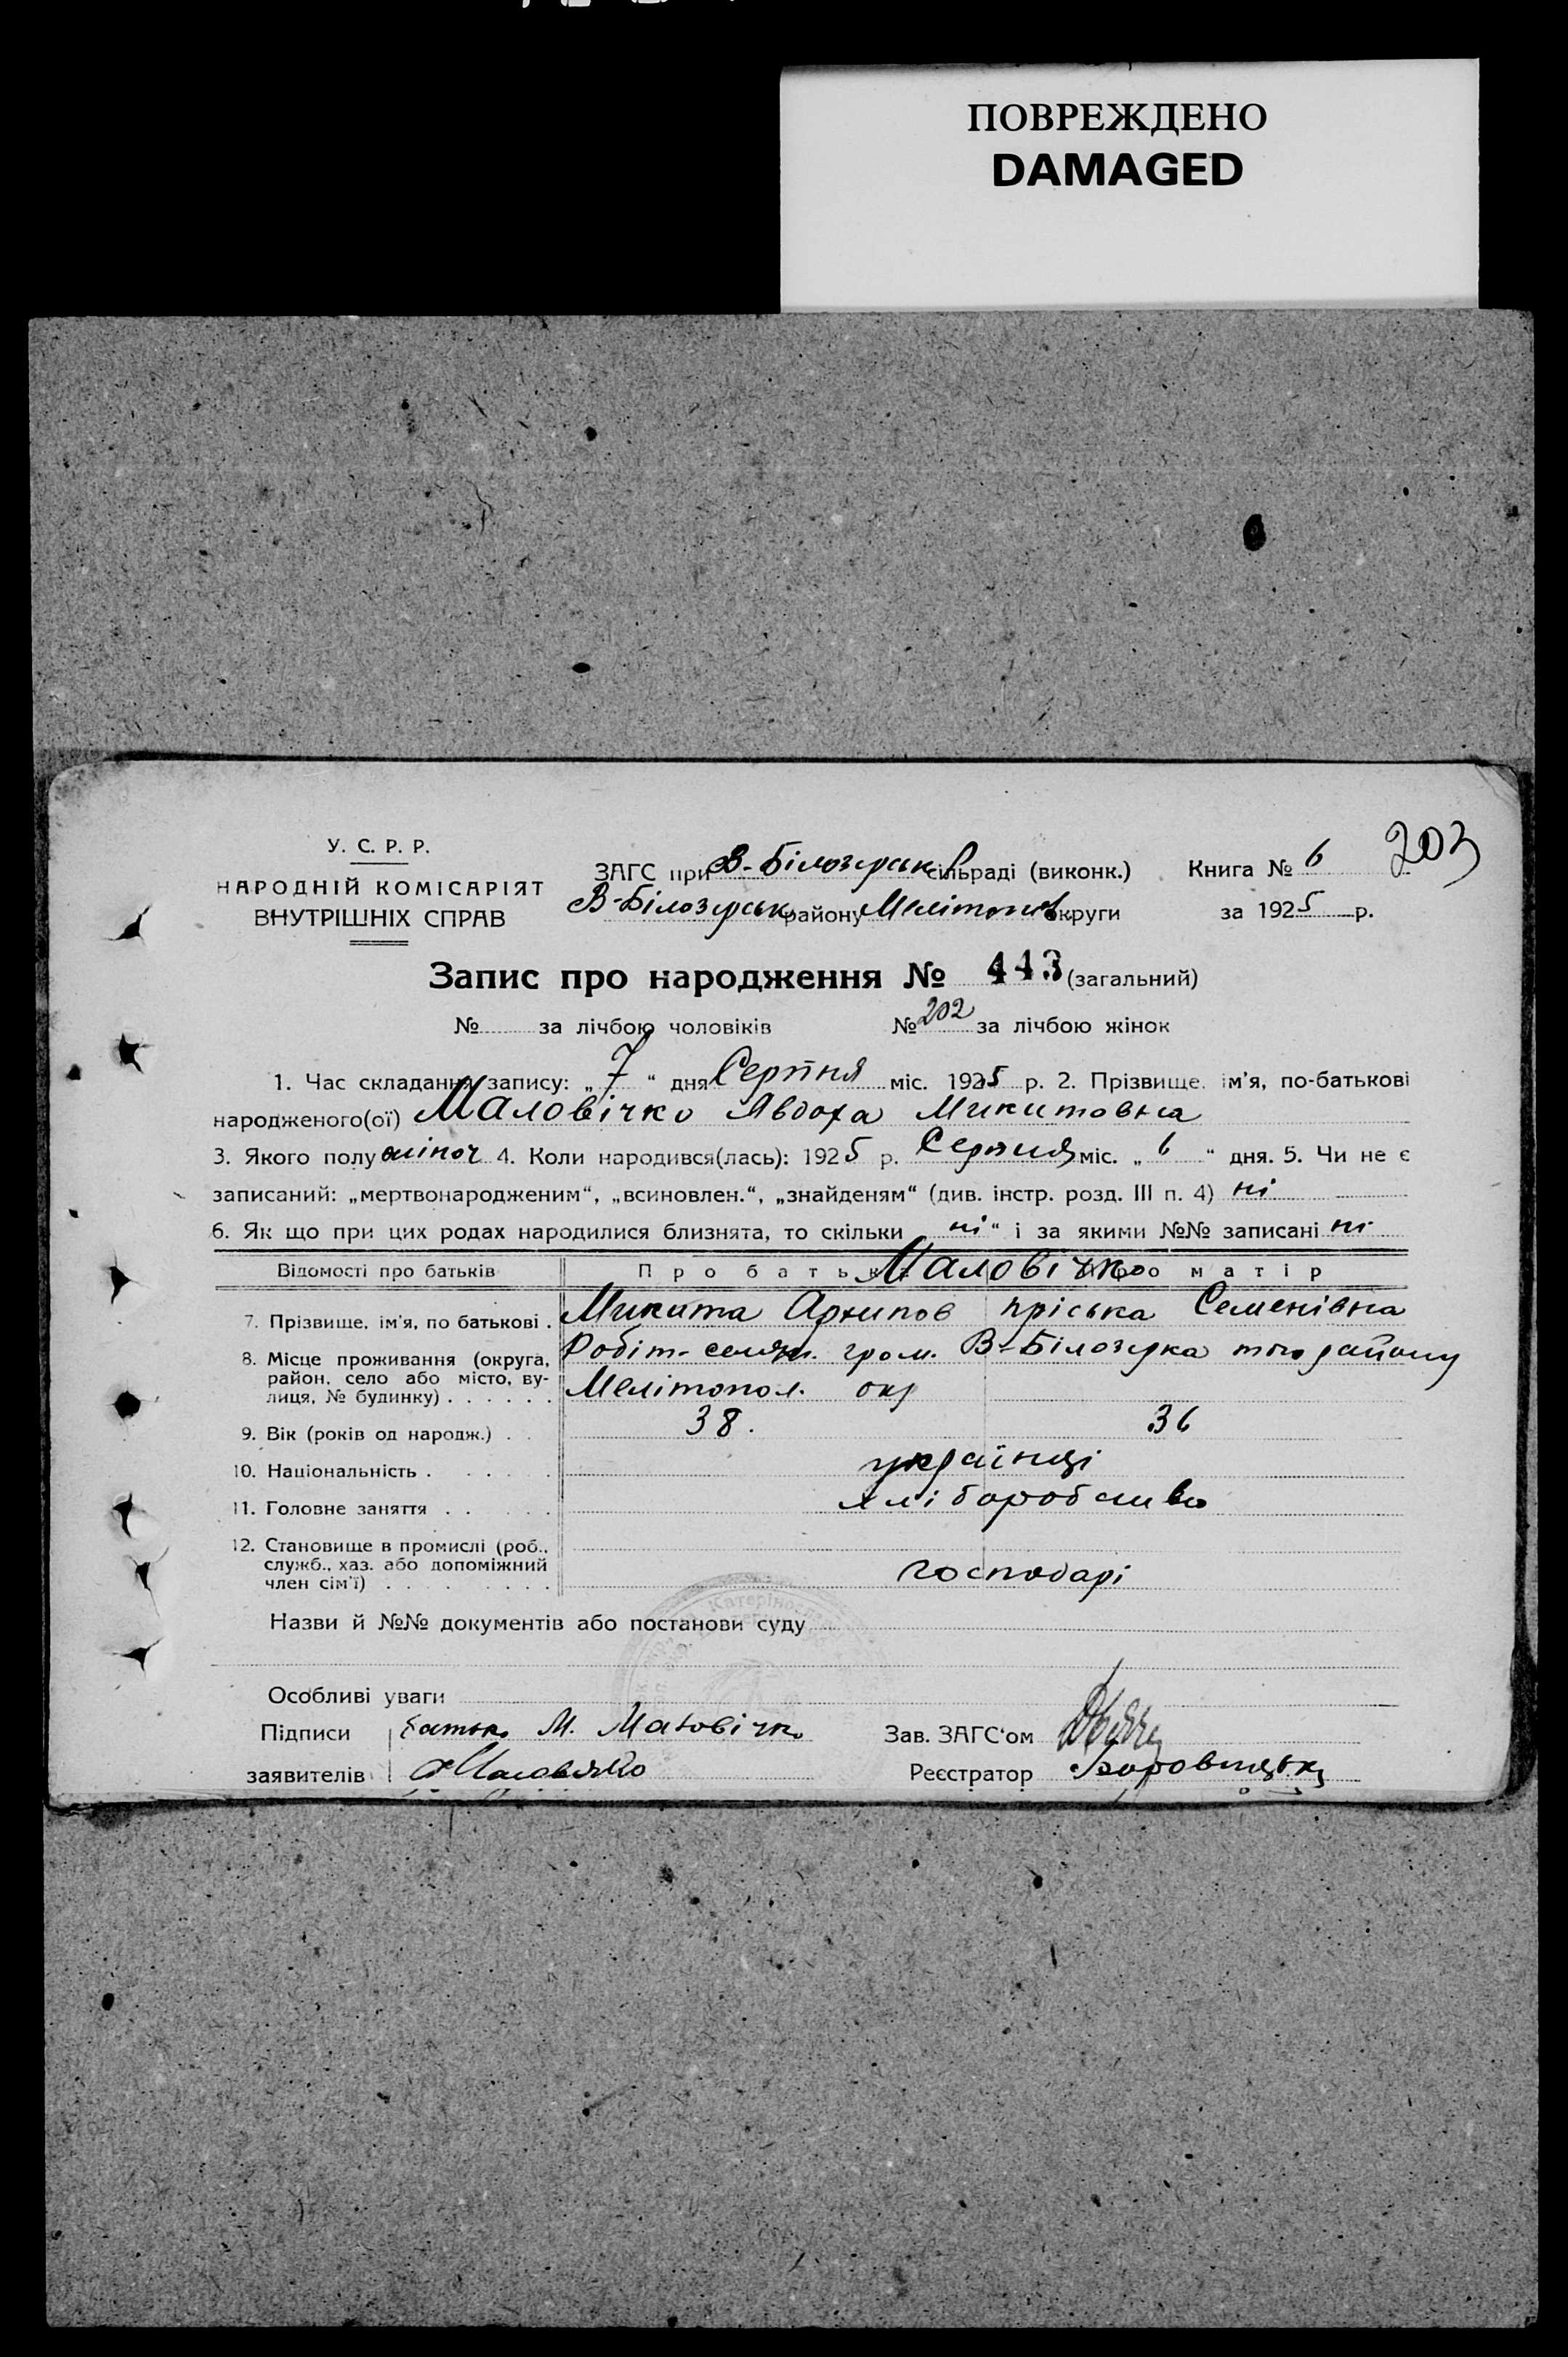 ПОВРЕЖДЕНО
DAMAGED
203
У. С. Р. Р.
НАРОДНІЙ КОМІСАРІЯТ
ВНУТРІШНІХ СПРАВ
ЗАГС при В-Білозерськ сільраді (виконк.) Книга № 6
В-Білозерськ району Мелітопів округи за 1925 р.
Запис про народження № 443 (загальний)
№ за лічбою чоловіків № 202 за лічбою жінок
1. Час складання запису: „7“ дня Серпня міс. 1925 р. 2. Прізвище, ім'я, по-батькові
народженого(ої) Маловічко Явдоха Микитовна
3. Якого полу жіноч 4. Коли народився(лась): 1925 р. Серпня міс. „6“ дня. 5. Чи не є
записаний: „мертвонародженим“, „всиновлен.“, „знайденям“ (див. інстр. розд. III п. 4) ні
6. Як що при цих родах народилися близнята, то скільки „ні“ і за якими №№ записані ні
Відомості про батьків Про батька Про матір
Маловічко
7. Прізвище, ім'я, по батькові . Микита Архипов Пріська Семенівна
8. Місце проживання (округа, район, село або місто, вулиця, № будинку) . . . . . . Робіт- селян. гром. В-Білозерка того району
Мелітопол. окр
9. Вік (років од народж.) . . 38. 36
10. Національність . . . . . українці
11. Головне заняття . . . . . хліборобство
12. Становище в промислі (роб.,
служб., хаз. або допоміжний
член сім'ї) . . . . . . . господарі
Назви й №№ документів або постанови суду
Особливі уваги
Підписи батько М. Маловічко Зав. ЗАГС'ом
заявителів Маловичко Реєстратор Боровицьк